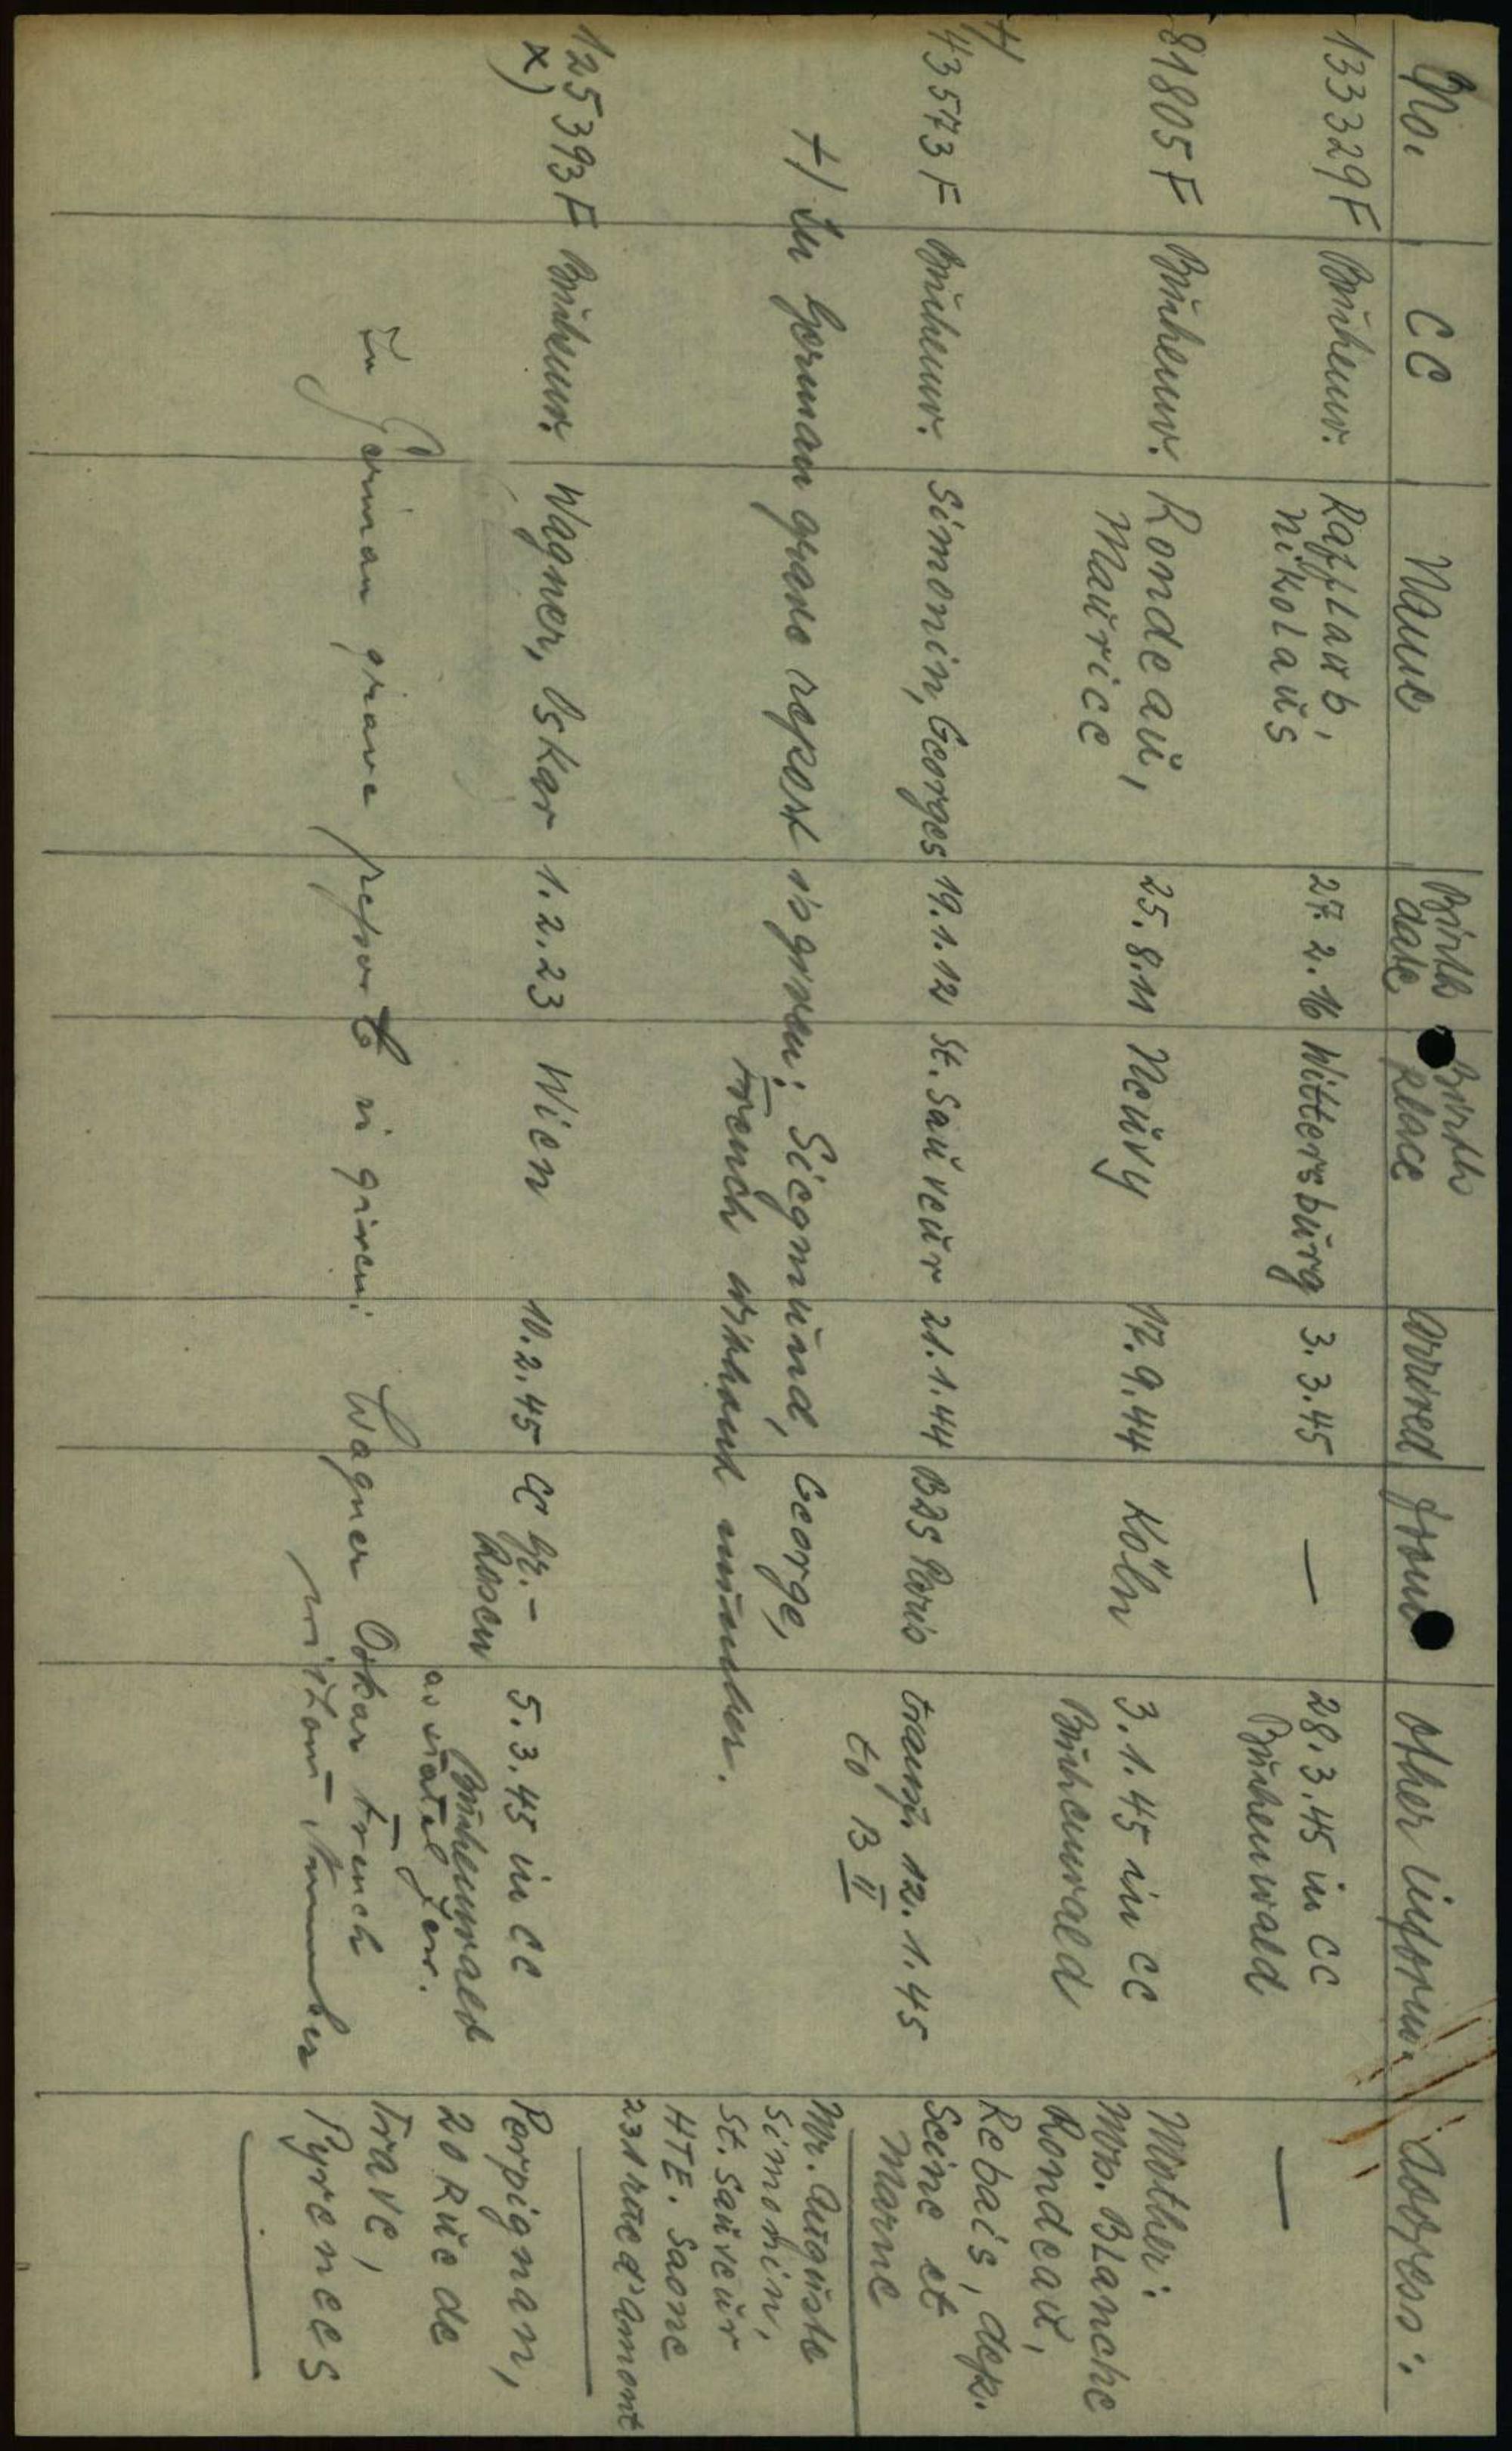 No. CC Name Birth date Birth place arrived from other inform. address:
133329F Buchenw. Rafflaub, 27.2.16 Wittersburg 3.3.45 — 28.3.45 in CC —
Nikolaus Buchenwald
81805F Buchenw. Rondeau, 25.8.11 Neuvy 17.9.44 Köln 3.1.45 in CC Mother:
Maurice Buchenwald Mrs. Blanche
Rondeau,
Rebais, dep.
+/
43573F Buchenw. Simonin, Georges 19.1.12 St. Sauveur 21.1.44 BDS Paris transp. 12.1.45 Seine et
to B II Marne
+/ In German grave report is given: Siegmund, George, Mr. Auguste
Simonin,
French without number. St. Sauveur
HTE. Saone
231 rue d'amont
125393F Buchenw. Wagner, Oskar 1.2.23 Wien 10.2.45 CC Gr.- 5.3.45 in CC Perpignan,
x) Rosen Buchenwald 20 Rue de
In German grave report is given: Wagner Oskar French Trave,
without Number Pyrenees